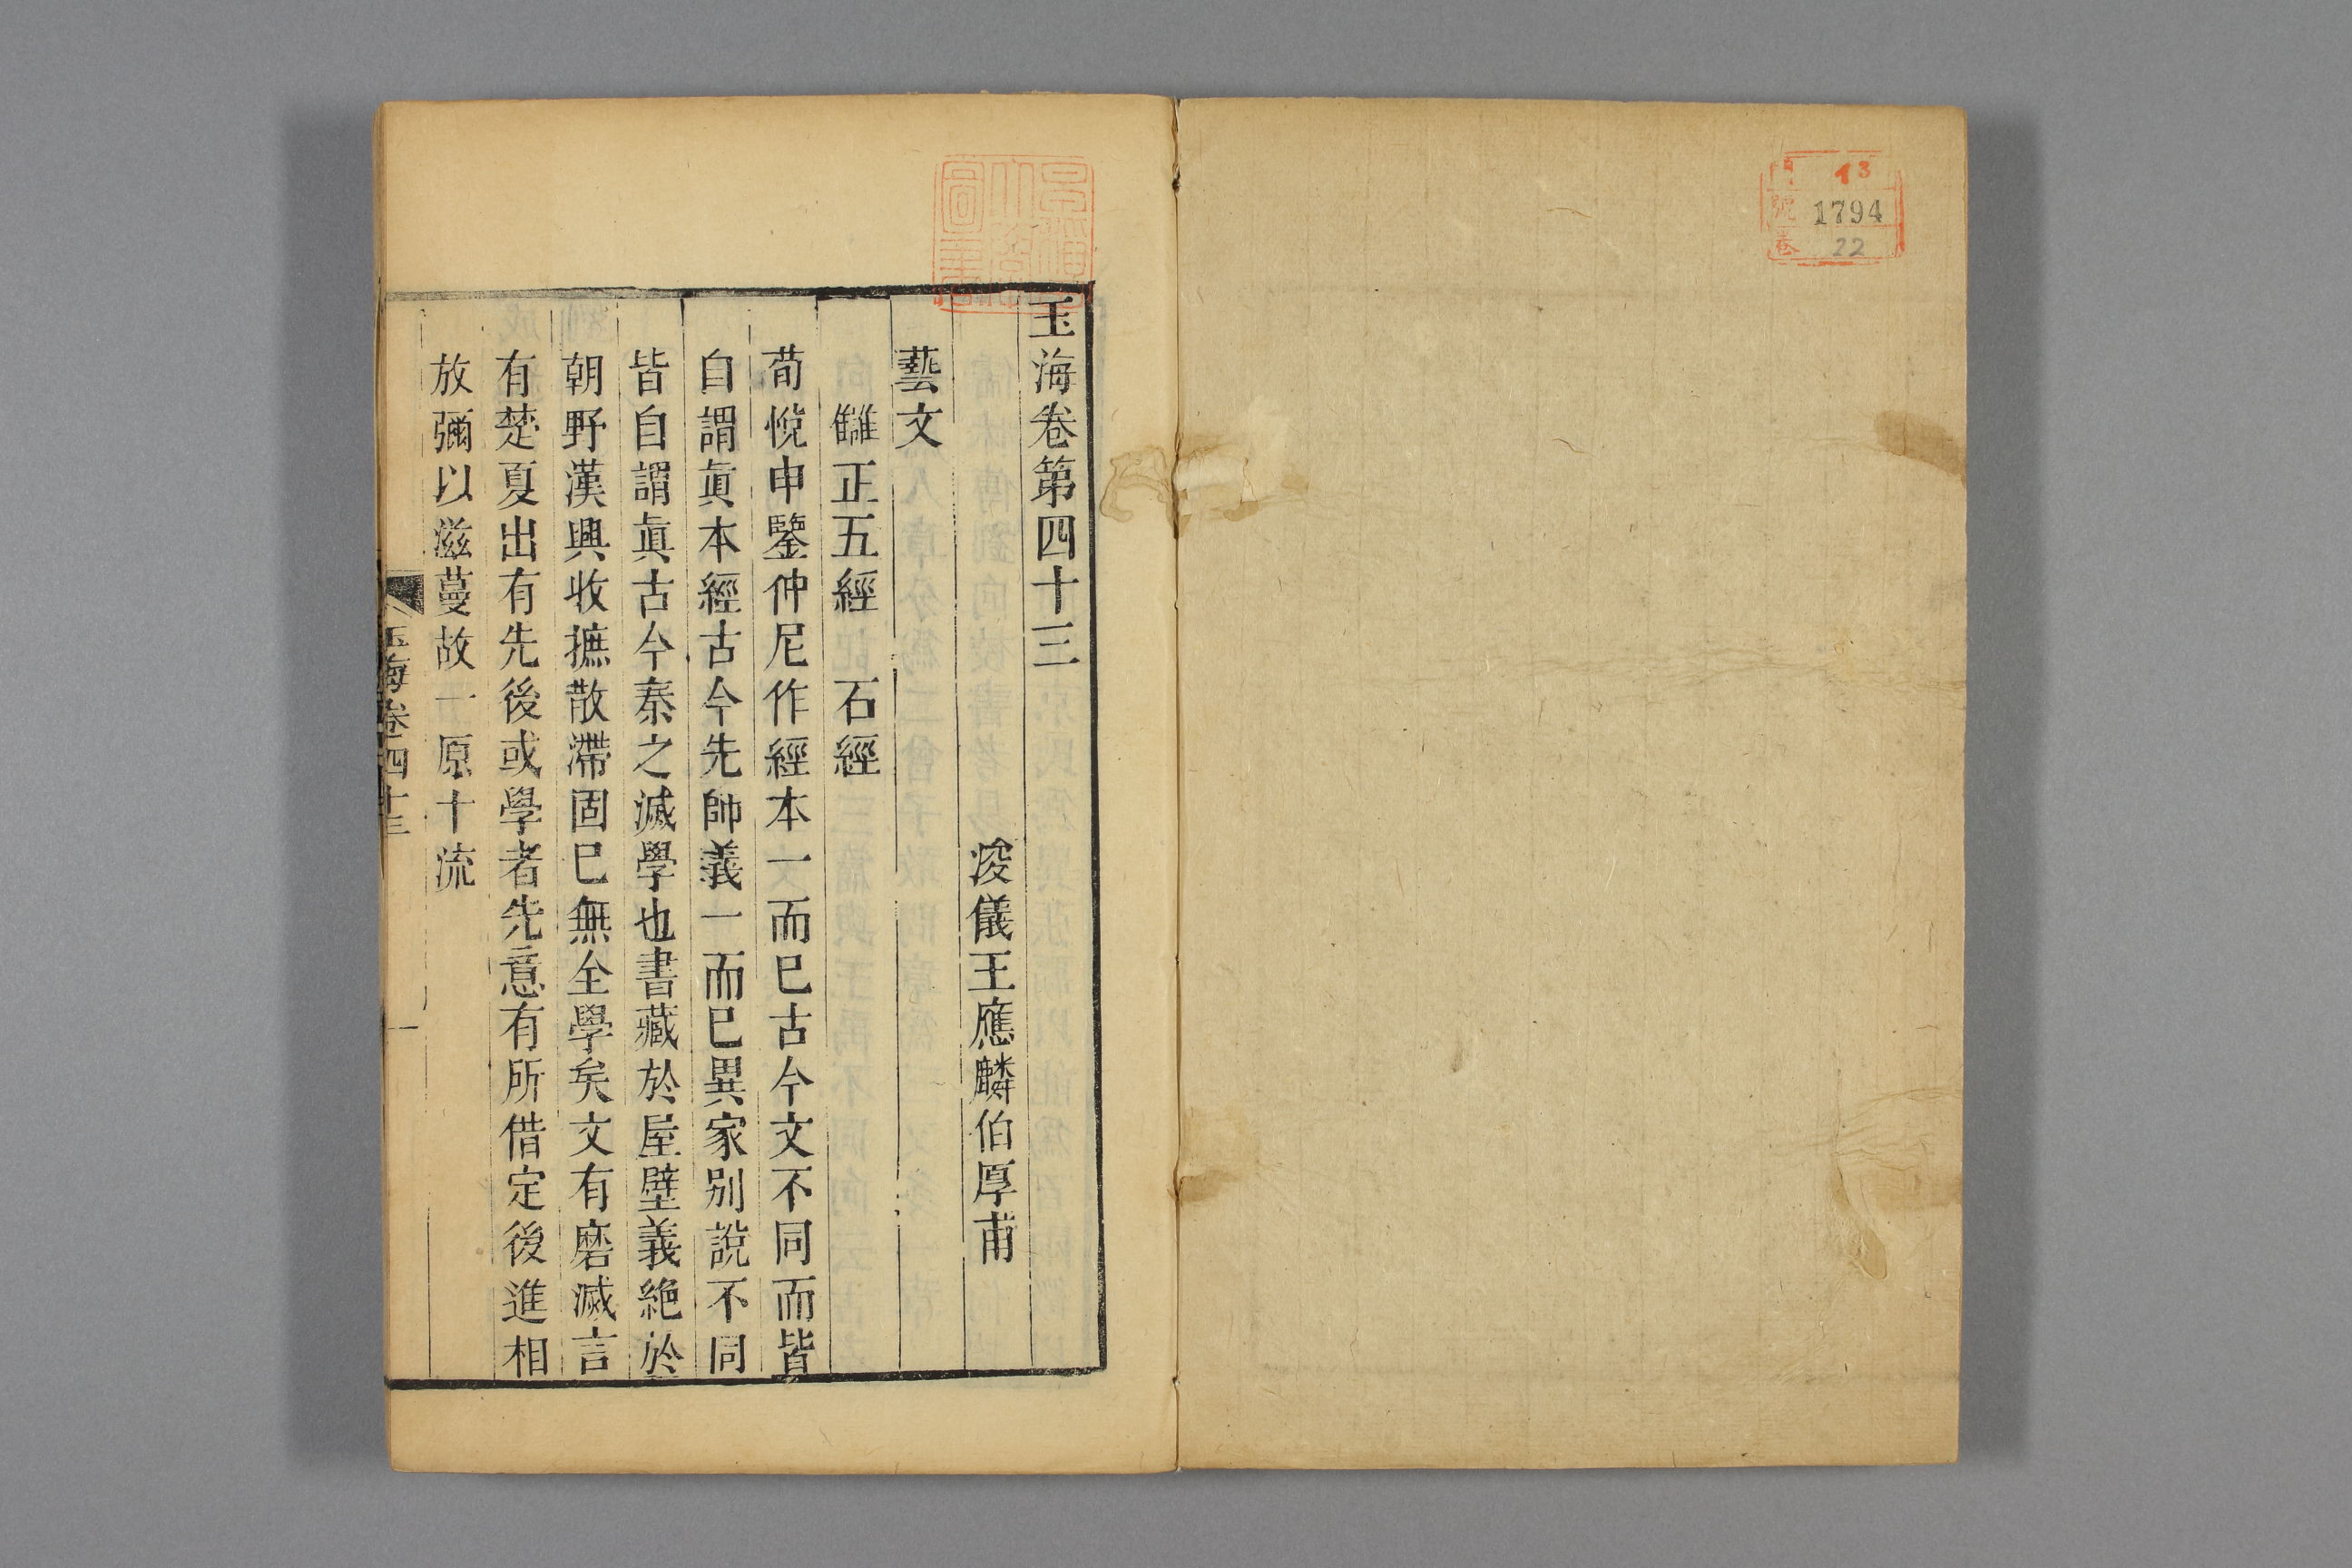 門 13
號 1794
卷 22
玉海卷第四十三
浚儀王應麟伯厚甫
藝文
讎正五經 石經
荀悅申鑒仲尼作經本一而巳古今文不同而皆
自謂眞本經古今先師義一而巳異家别說不同
皆自謂眞古今秦之滅學也書藏於屋壁義絶於
朝野漢興收摭散滯固巳無全學矣文有磨滅言
有楚夏出有先後或學者先意有所借定後進相
放彌以滋蔓故一原十流
玉海卷四十三
一